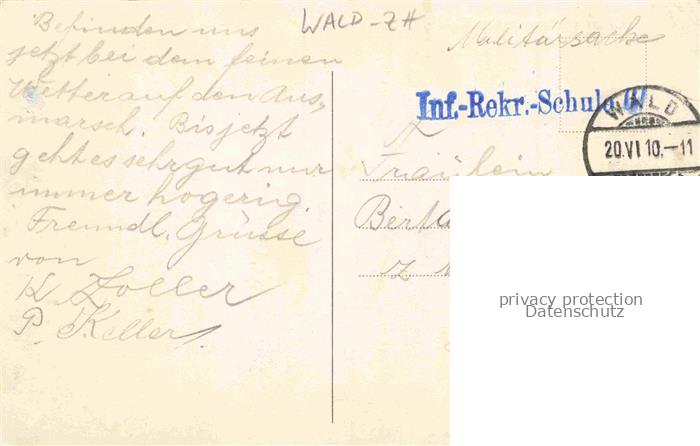 WALD-ZH
Befinden uns
jetzt bei dem feinen
Wetter auf den Aus-
marsch. Bis jetzt
geht es sehr gut nur
immer hogerig.
Freundl. Grüsse
von
K. Zoller
P. Keller.
Militärsache
Inf.-Rekr.-Schule
WALD
20.VI 10.-11
Fräulein
Berta
privacy protection
Datenschutz